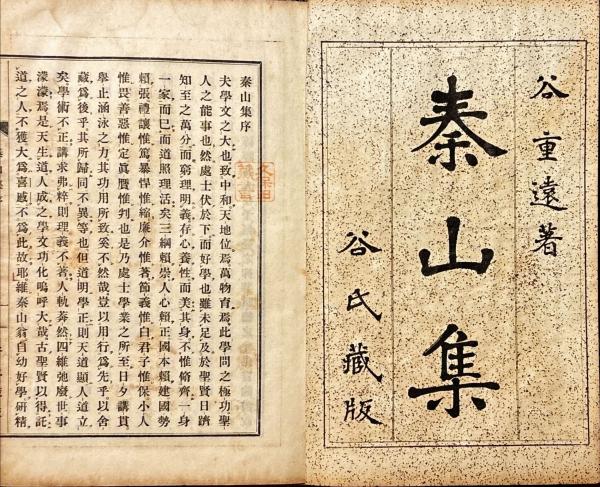 谷重遠著
秦山集
谷氏藏版
秦山集序
夫學文之大也致中和天地位焉萬物育焉此學問之極功聖
人之能事也然處士伏於下而好學也雖未足及於聖賢日躋
知至之萬分而窮理明義存心養性而美其身不惟脩齊一身
一家而已而道照理活矣三綱賴崇人心賴正國本賴建國勢
賴張禮讓惟篤暴悍惟縮廉介惟著節義惟白君子惟保小人
惟畏善惡惟定眞贋惟判也是乃處士學業之所至日夕講貫
舉止涵泳之力其功用所致奚不然哉豈以用行爲先乎以舍
藏爲後乎其所歸同不異等也但道明學正則天道顯人道立
矣學術不正講求弗粹則理義不著人軌莽然四維弛廢世事
濛濛焉是天生道人成之學文功化嗚呼大哉古聖賢以得託
道之人不獲大爲喜慼不爲此故耶維秦山翁自幼好學研精